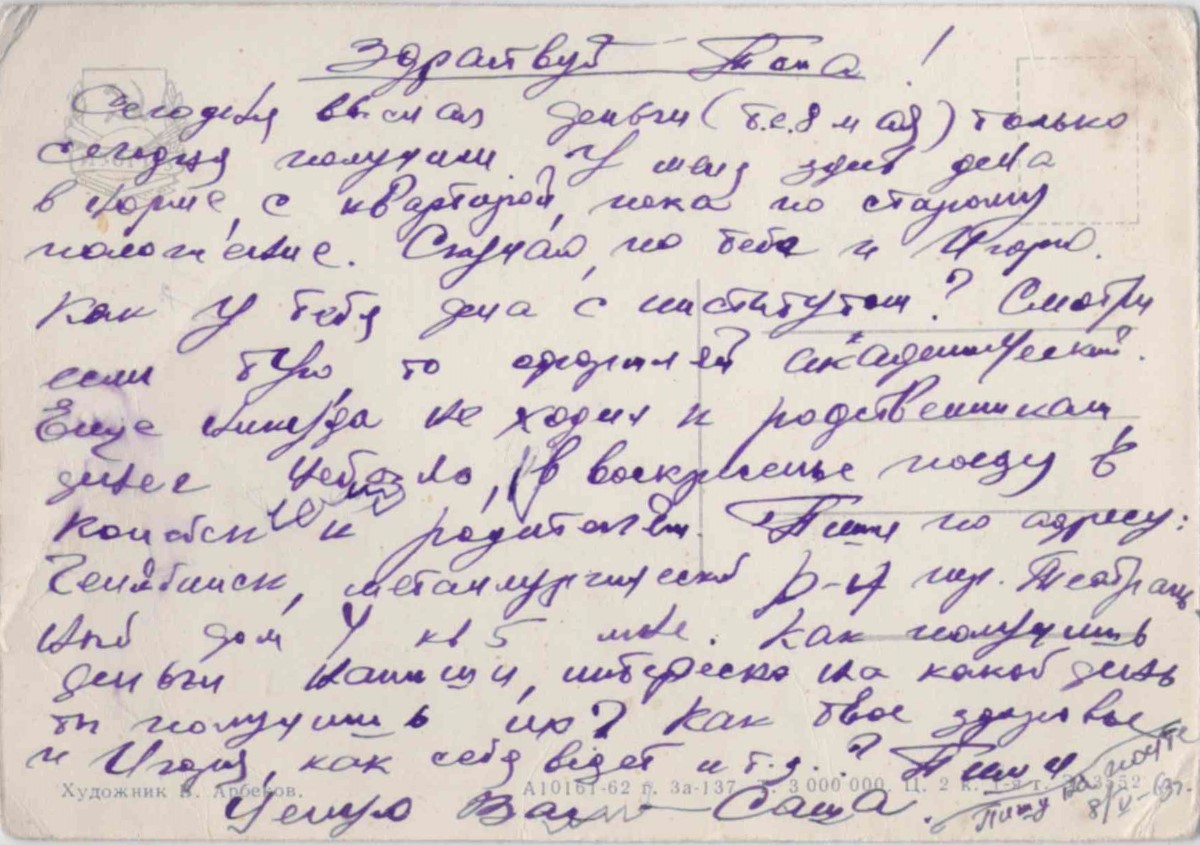 Здраствуй Тома!
Сегодня выслал деньги (т.е. 8 мая) только
сегодня получили. У меня здесь дела
в норме, с квартирой, пока по старому
положение. Скучаю, по тебе и Игорю.
Как у тебя дела с институтом? Смотри
если туго, то оформляй академический.
Еще никуда не ходил к родственникам
денег не было, в воскресенье поеду в
Копейск к родителям. Пиши по адресу:
Челябинск, металлургический р-н пер. Театраль
ный дом 4 кв 5 мне. Как получишь
деньги напиши, интересно на какой день
ты получишь их? Как твое здоровье
и Игоря, как себя ведет и т.д.? Пиши
Художник В. Арбеков. А10161-62 г. За-137. Т. 3 000 000. Ц. 2 к. 1-я т.
Целую Вас Саша.
Пишу на почте
8/V-63г.